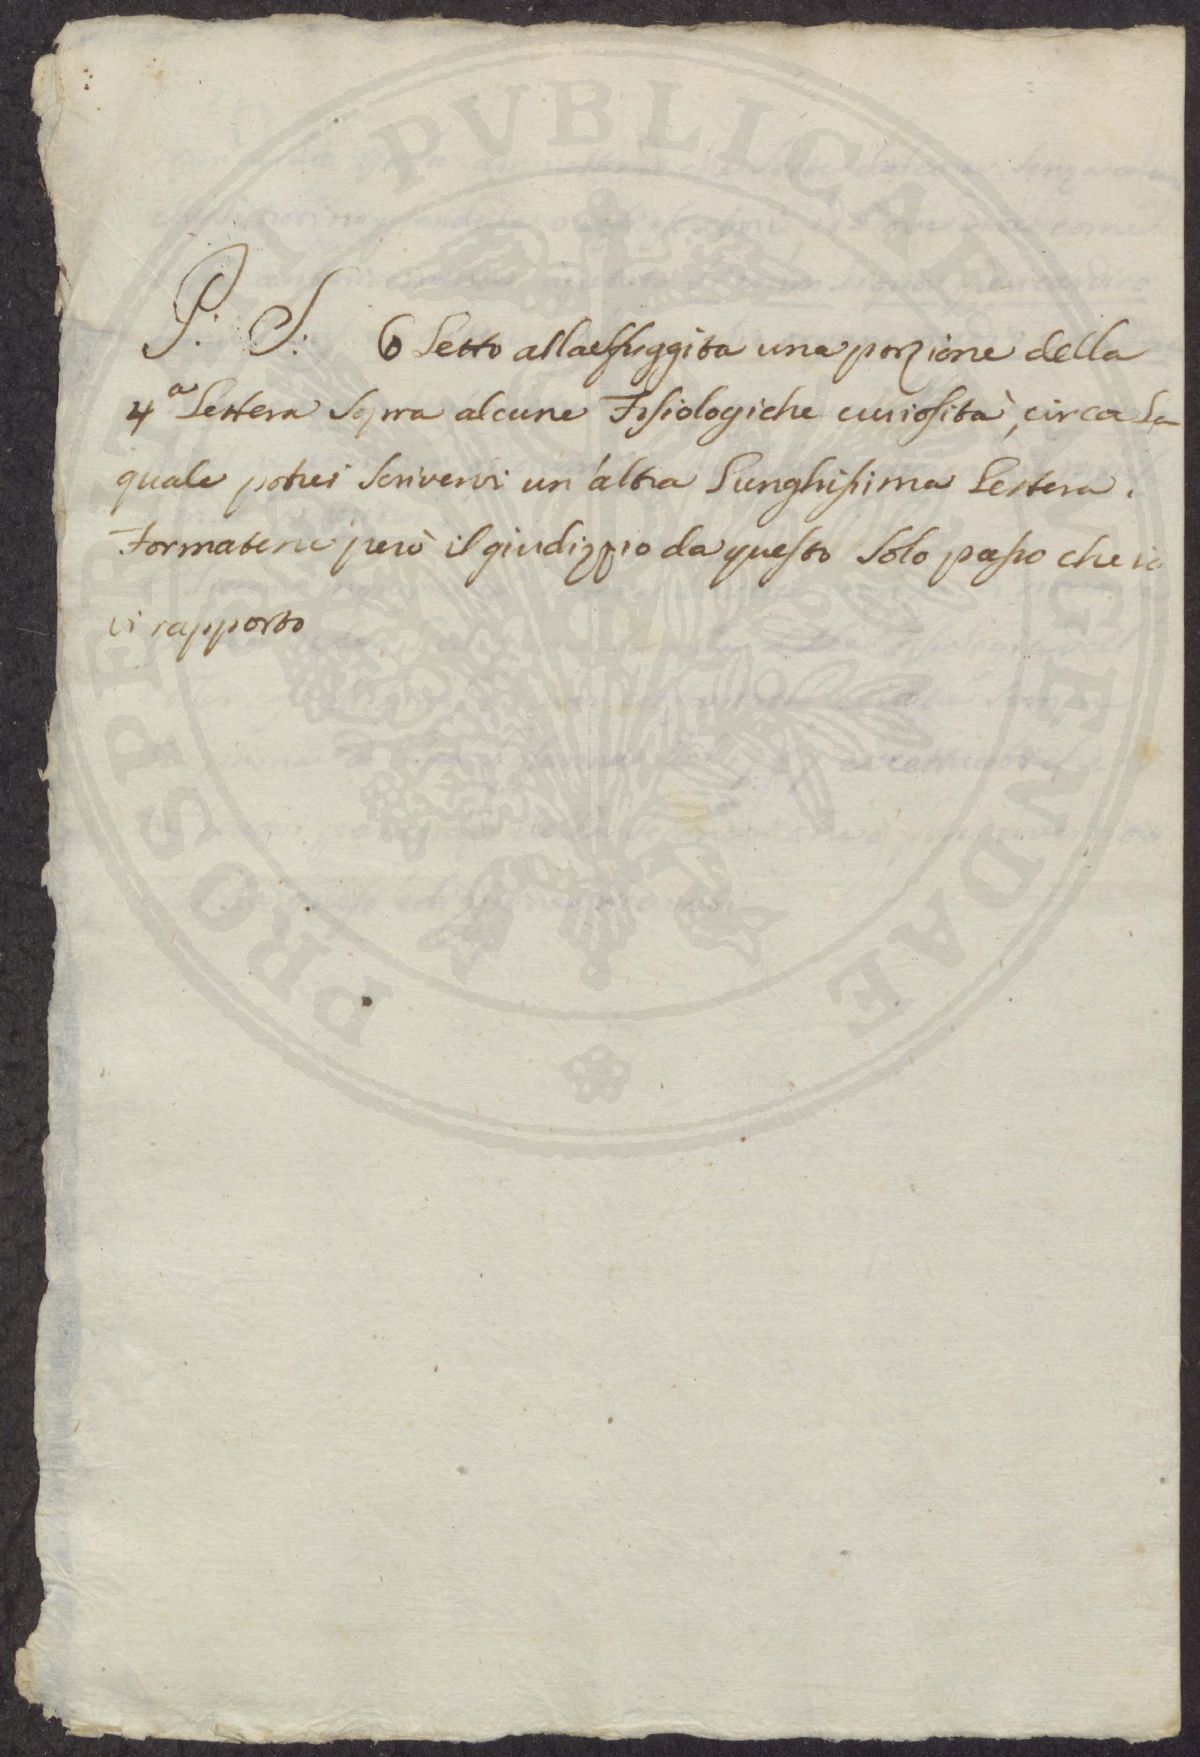 PROSPERITATI PUBLICAE AUGENDAE
P: S: Ò Letto allaesfuggita una porzione della
4ª Lettera sopra alcune Fisiologiche curiosità, circa la
quale potrei scrivervi un'altra Lunghissima Lettera.
Formatene però il giudizzio da questo solo passo che io
vi rapporto